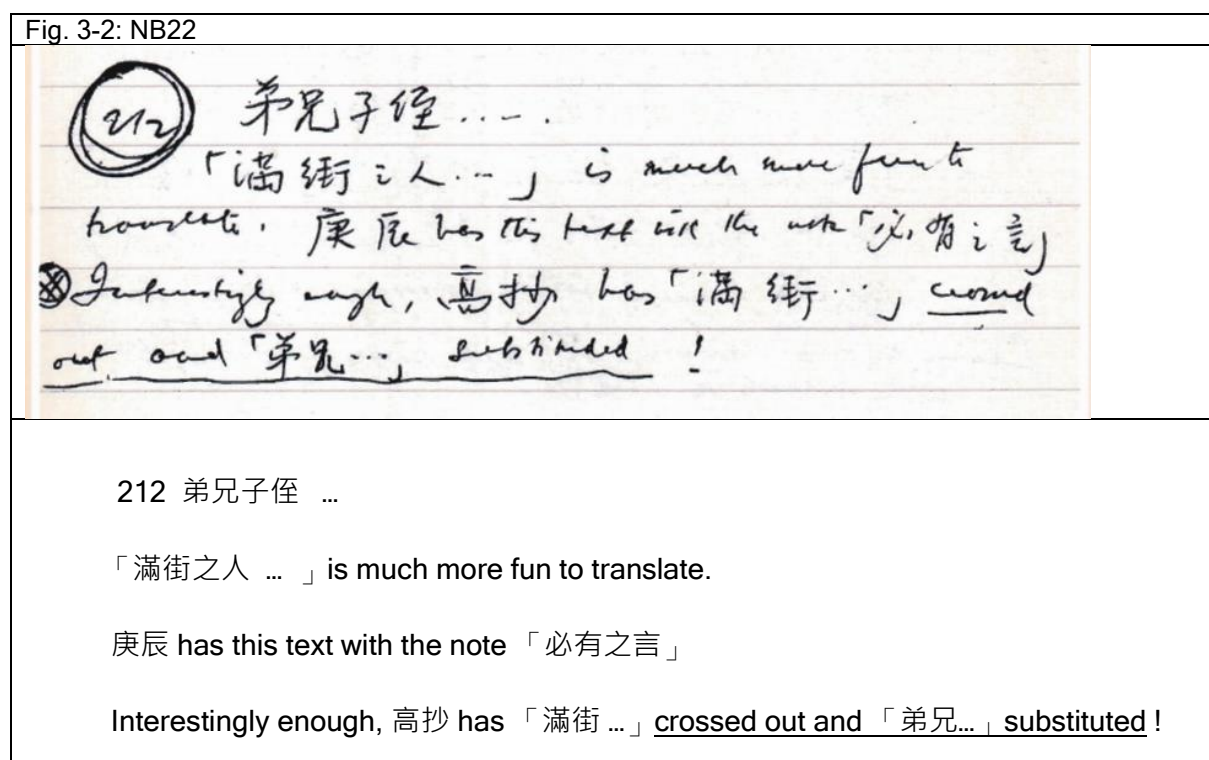 Fig. 3-2: NB22
212 弟兄子侄....
「滿街之人...」 is much more fun to
translate. 庚辰 has this text with the note 「必有之言」
Interestingly enough, 高抄 has 「滿街...」 crossed
out and 「弟兄...」 substituted !
212 弟兄子侄 ...
「滿街之人 ... 」is much more fun to translate.
庚辰 has this text with the note 「必有之言」
Interestingly enough, 高抄 has 「滿街 ...」crossed out and 「弟兄...」substituted !